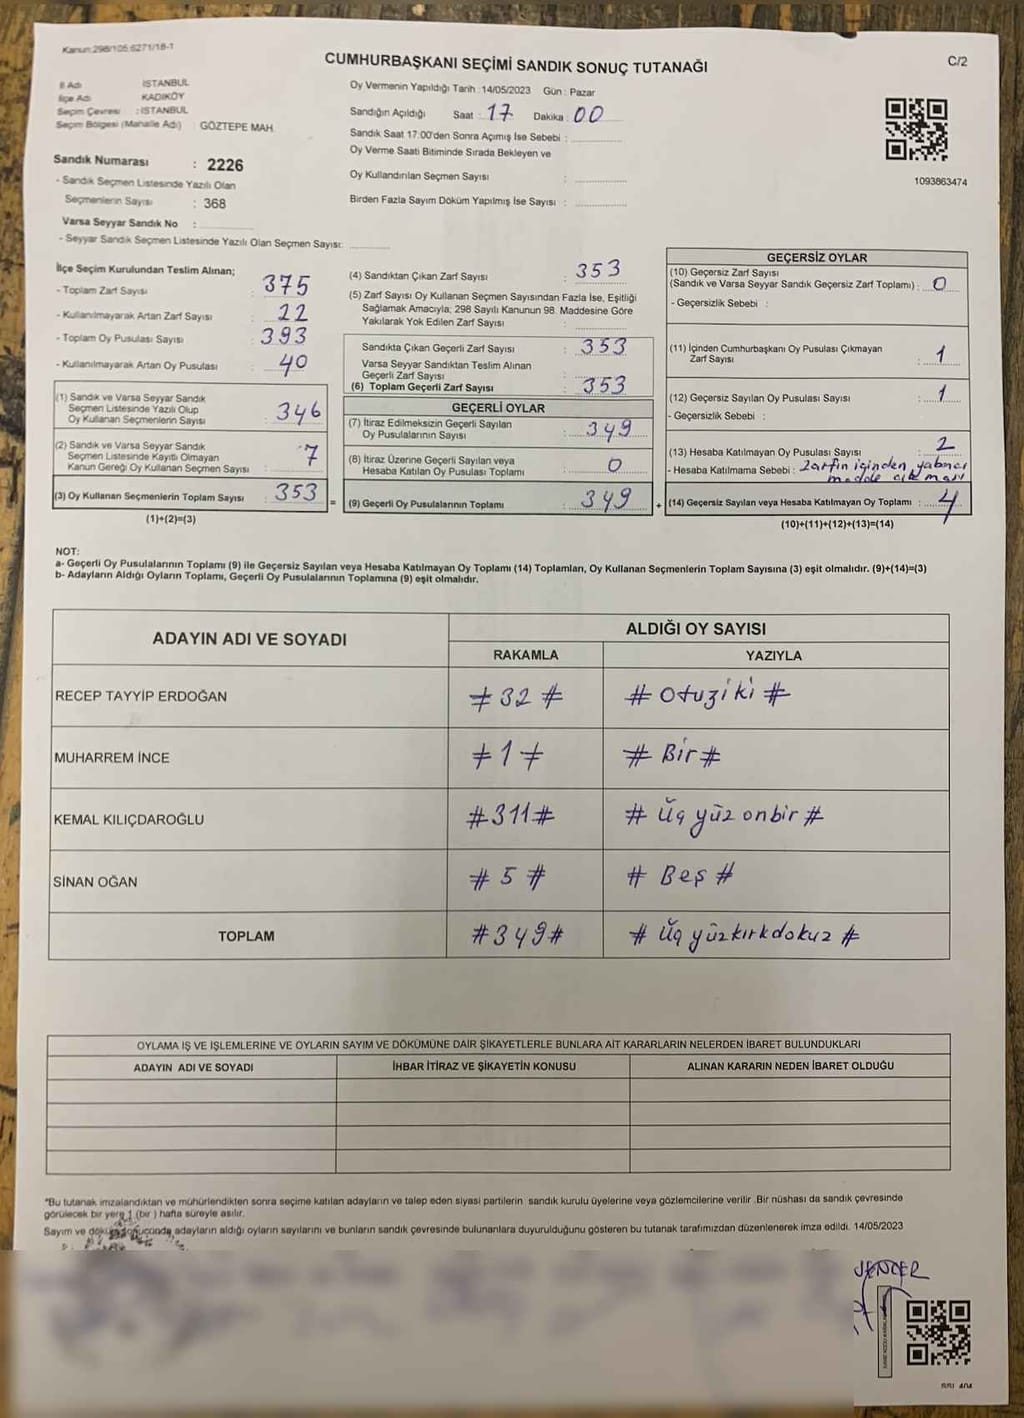 Kanun:298/105.6271/18-1
CUMHURBAŞKANI SEÇİMİ SANDIK SONUÇ TUTANAĞI
C/2
İl Adı : İSTANBUL
İlçe Adı : KADIKÖY
Seçim Çevresi : İSTANBUL
Seçim Bölgesi (Mahalle Adı) GÖZTEPE MAH.
Sandık Numarası : 2226
- Sandık Seçmen Listesinde Yazılı Olan
Seçmenlerin Sayısı : 368
Varsa Seyyar Sandık No :
- Seyyar Sandık Seçmen Listesinde Yazılı Olan Seçmen Sayısı:
Oy Vermenin Yapıldığı Tarih :14/05/2023 Gün : Pazar
Sandığın Açıldığı Saat : 17 Dakika : 00
Sandık Saat 17:00'den Sonra Açımış İse Sebebi :
Oy Verme Saati Bitiminde Sırada Bekleyen ve
Oy Kullandırılan Seçmen Sayısı :
Birden Fazla Sayım Döküm Yapılmış İse Sayısı :
1093863474
İlçe Seçim Kurulundan Teslim Alınan;
- Toplam Zarf Sayısı : 375
- Kullanılmayarak Artan Zarf Sayısı : 22
- Toplam Oy Pusulası Sayısı : 393
- Kullanılmayarak Artan Oy Pusulası : 40
(1) Sandık ve Varsa Seyyar Sandık
Seçmen Listesinde Yazılı Olup
Oy Kullanan Seçmenlerin Sayısı : 346
(2) Sandık ve Varsa Seyyar Sandık
Seçmen Listesinde Kayıtlı Olmayan
Kanun Gereği Oy Kullanan Seçmen Sayısı : 7
(3) Oy Kullanan Seçmenlerin Toplam Sayısı : 353
(1)+(2)=(3)
=
(4) Sandıktan Çıkan Zarf Sayısı : 353
(5) Zarf Sayısı Oy Kullanan Seçmen Sayısından Fazla İse, Eşitliği
Sağlamak Amacıyla; 298 Sayılı Kanunun 98. Maddesine Göre
Yakılarak Yok Edilen Zarf Sayısı :
Sandıkta Çıkan Geçerli Zarf Sayısı : 353
Varsa Seyyar Sandıktan Teslim Alınan
Geçerli Zarf Sayısı :
(6) Toplam Geçerli Zarf Sayısı : 353
GEÇERLİ OYLAR
(7) İtiraz Edilmeksizin Geçerli Sayılan
Oy Pusulalarının Sayısı : 349
(8) İtiraz Üzerine Geçerli Sayılan veya
Hesaba Katılan Oy Pusulası Toplamı : 0
(9) Geçerli Oy Pusulalarının Toplamı : 349
+
GEÇERSİZ OYLAR
(10) Geçersiz Zarf Sayısı
(Sandık ve Varsa Seyyar Sandık Geçersiz Zarf Toplamı) : 0
- Geçersizlik Sebebi :
(11) İçinden Cumhurbaşkanı Oy Pusulası Çıkmayan
Zarf Sayısı : 1
(12) Geçersiz Sayılan Oy Pusulası Sayısı : 1
- Geçersizlik Sebebi :
(13) Hesaba Katılmayan Oy Pusulası Sayısı 2
- Hesaba Katılmama Sebebi : Zarfın içinden yabancı
madde çıkması
(14) Geçersiz Sayılan veya Hesaba Katılmayan Oy Toplamı : 4
(10)+(11)+(12)+(13)=(14)
NOT:
a- Geçerli Oy Pusulalarının Toplamı (9) ile Geçersiz Sayılan veya Hesaba Katılmayan Oy Toplamı (14) Toplamları, Oy Kullanan Seçmenlerin Toplam Sayısına (3) eşit olmalıdır. (9)+(14)=(3)
b- Adayların Aldığı Oyların Toplamı, Geçerli Oy Pusulalarının Toplamına (9) eşit olmalıdır.
ADAYIN ADI VE SOYADI
ALDIĞI OY SAYISI
RAKAMLA YAZIYLA
RECEP TAYYİP ERDOĞAN # 32 # # Otuziki #
MUHARREM İNCE # 1 # # Bir #
KEMAL KILIÇDAROĞLU #311# # Üç yüz onbir #
SİNAN OĞAN # 5 # # Beş #
TOPLAM #349# # Üç yüzkırkdokuz #
OYLAMA İŞ VE İŞLEMLERİNE VE OYLARIN SAYIM VE DÖKÜMÜNE DAİR ŞİKAYETLERLE BUNLARA AİT KARARLARIN NELERDEN İBARET BULUNDUKLARI
ADAYIN ADI VE SOYADI İHBAR İTİRAZ VE ŞİKAYETİN KONUSU ALINAN KARARIN NEDEN İBARET OLDUĞU
*Bu tutanak imzalandıktan ve mühürlendikten sonra seçime katılan adayların ve talep eden siyasi partilerin sandık kurulu üyelerine veya gözlemcilerine verilir .Bir nüshası da sandık çevresinde
görülecek bir yere 1 (bir ) hafta süreyle asılır.
Sayım ve döküm sonucunda adayların aldığı oyların sayılarını ve bunların sandık çevresinde bulunanlara duyurulduğunu gösteren bu tutanak tarafımızdan düzenlenerek imza edildi. 14/05/2023